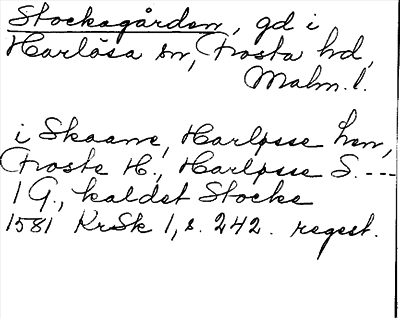 Stocksgården, gd i
Harlösa sn, Frosta hd,
Malm. l.
i Skaane, Harløsse hrn,
Froste H., Harløsse S. ---
1 G., kaldet Stocke
1581 KrSk 1, s. 242. regest.